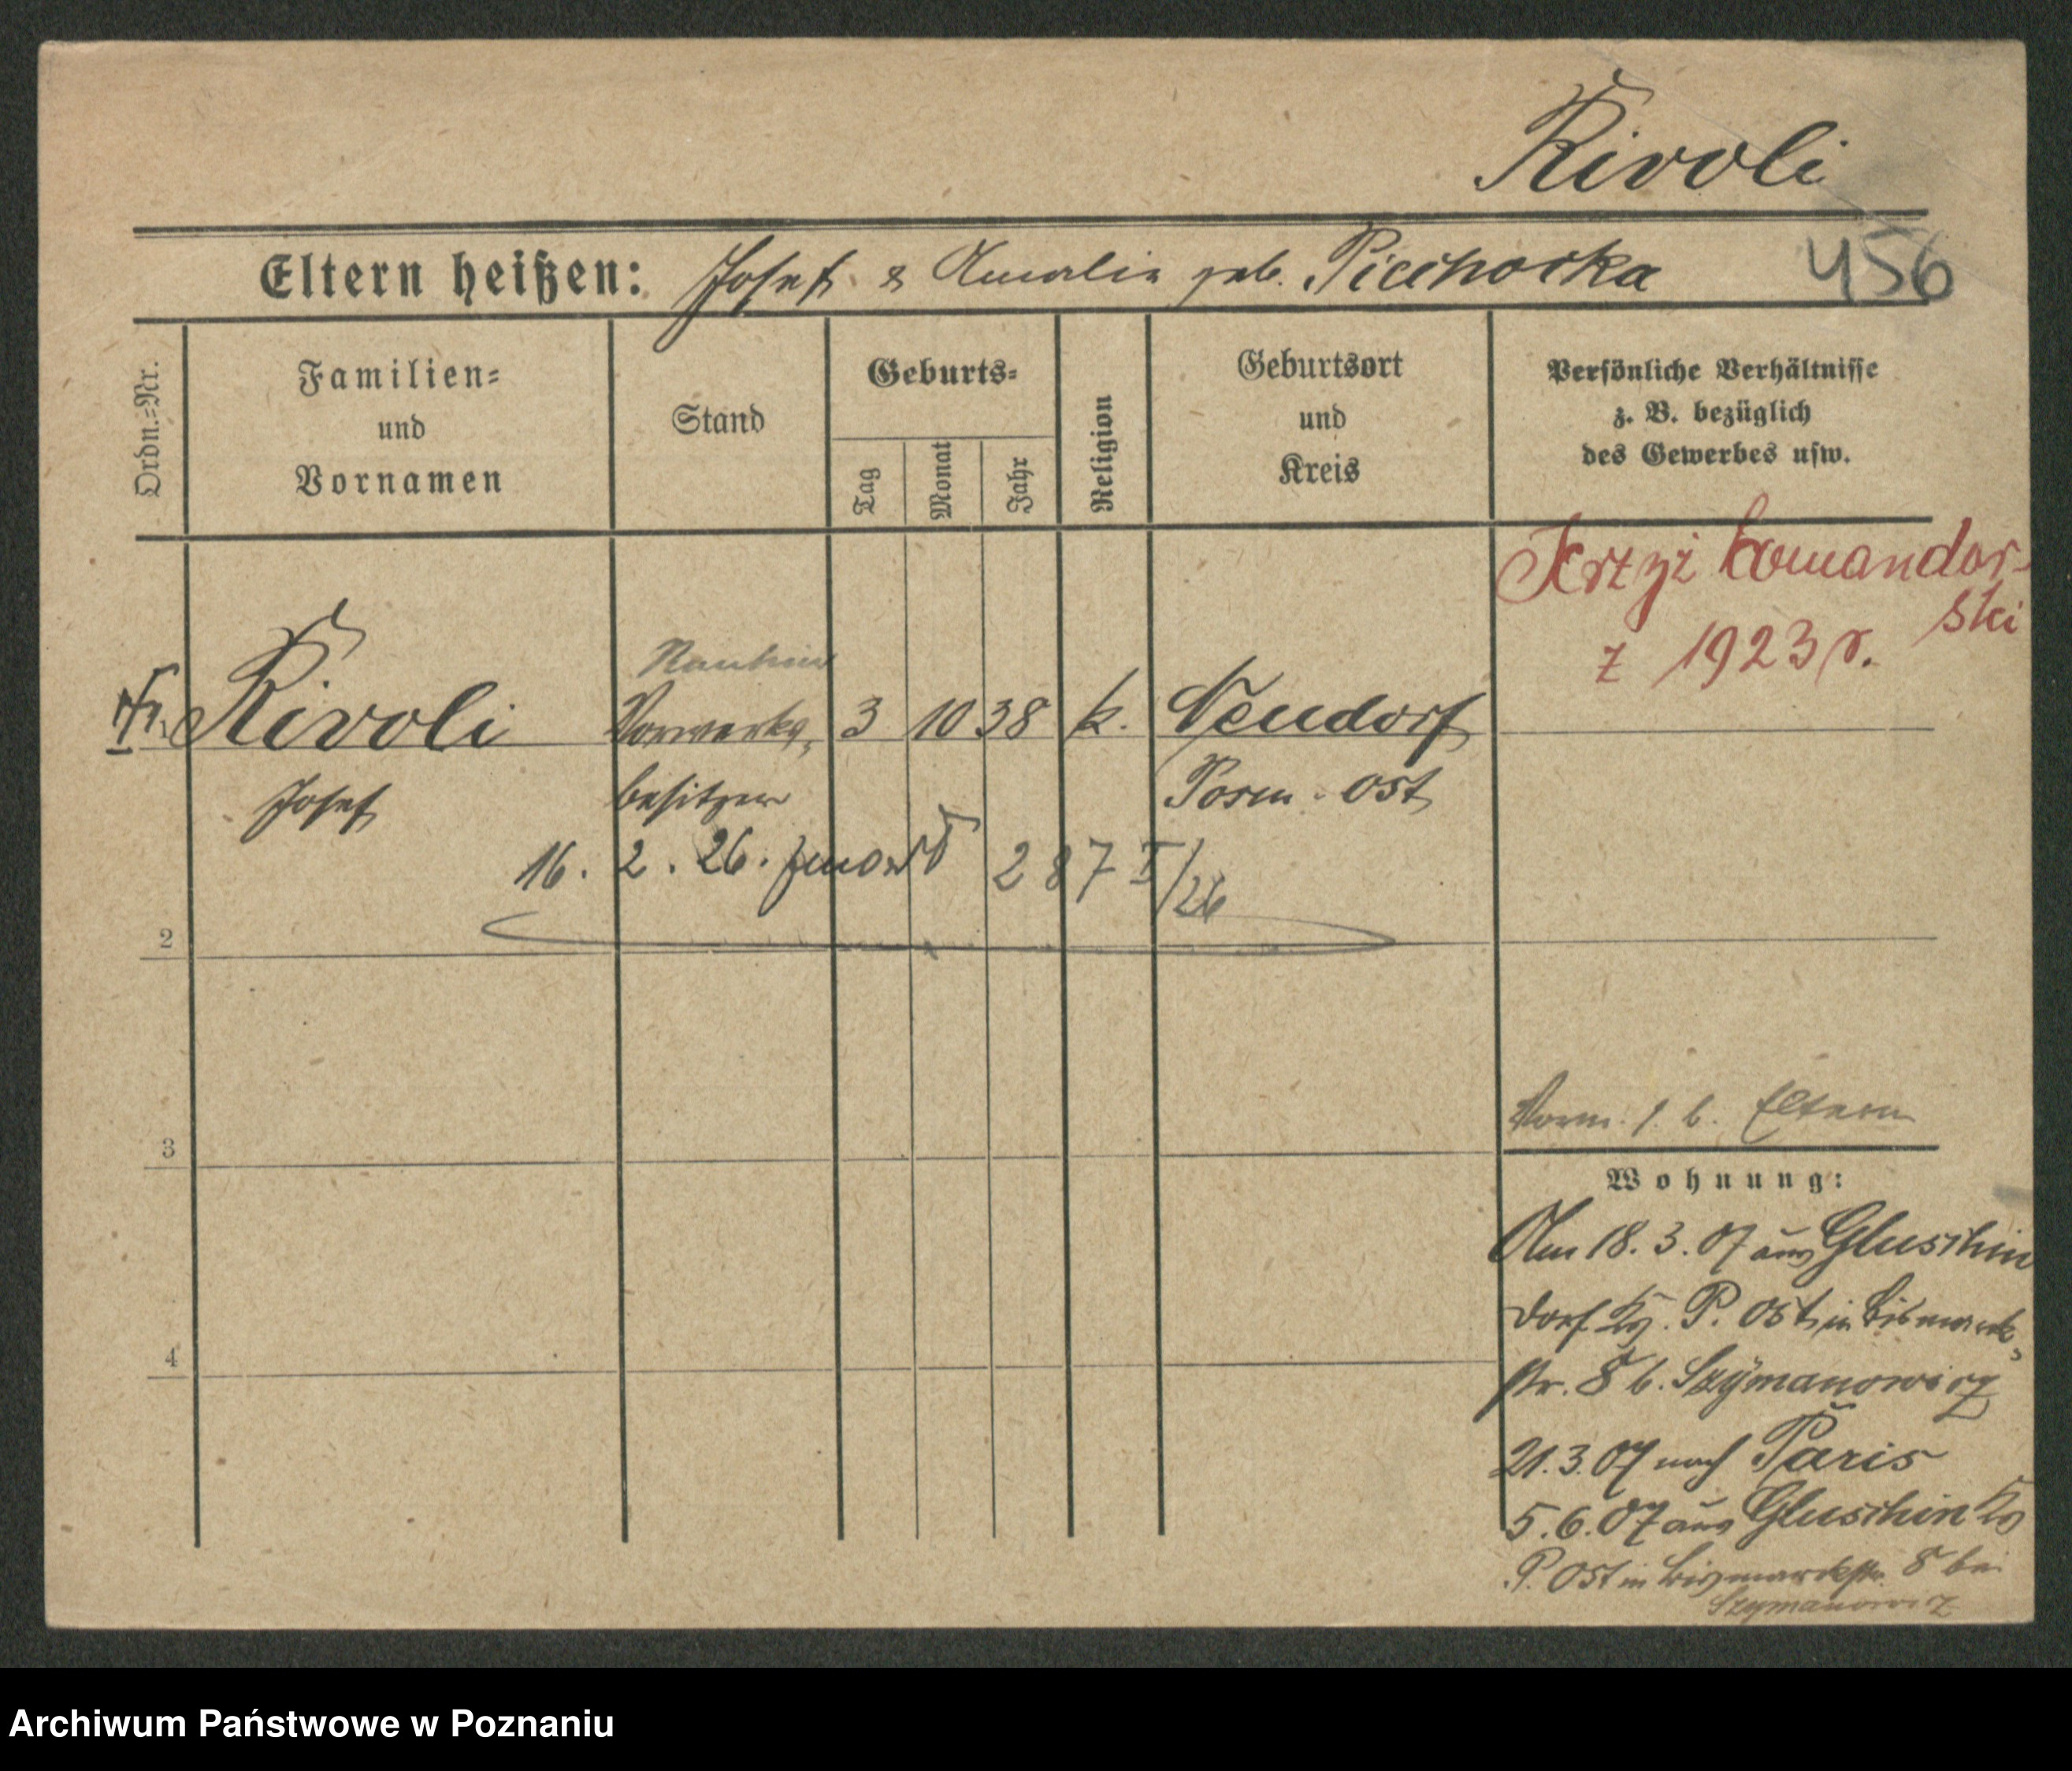 Rivoli
Eltern heißen: Josef & Amalie geb. Piechocka 456
Ordn.-Nr.
Familien-
und
Vornamen
Stand
Geburts-
Tag
Monat
Jahr
Religion
Geburtsort
und
Kreis
Persönliche Verhältnisse
z. B. bezüglich
des Gewerbes usw.
Krzyż komandor-
ski
z 1923 r.
Rentier
Rivoli Vorwerks- 3 10 38 k. Neudorf
Josef besitzer Posen - Ost
16. 2. 26. 287 I/26
2
3
4
Verm. s. b. Eltern
Wohnung:
Am 18. 3. 07 aus Gluschin
dorf Ks. P. Ost in Bismarck-
str. 8 b. Szymanowicz
21. 3. 07 nach Paris
5. 6. 07 aus Gluschin Ks
P. Ost in Bismarckstr. 8 bei
Szymanowicz
Archiwum Państwowe w Poznaniu